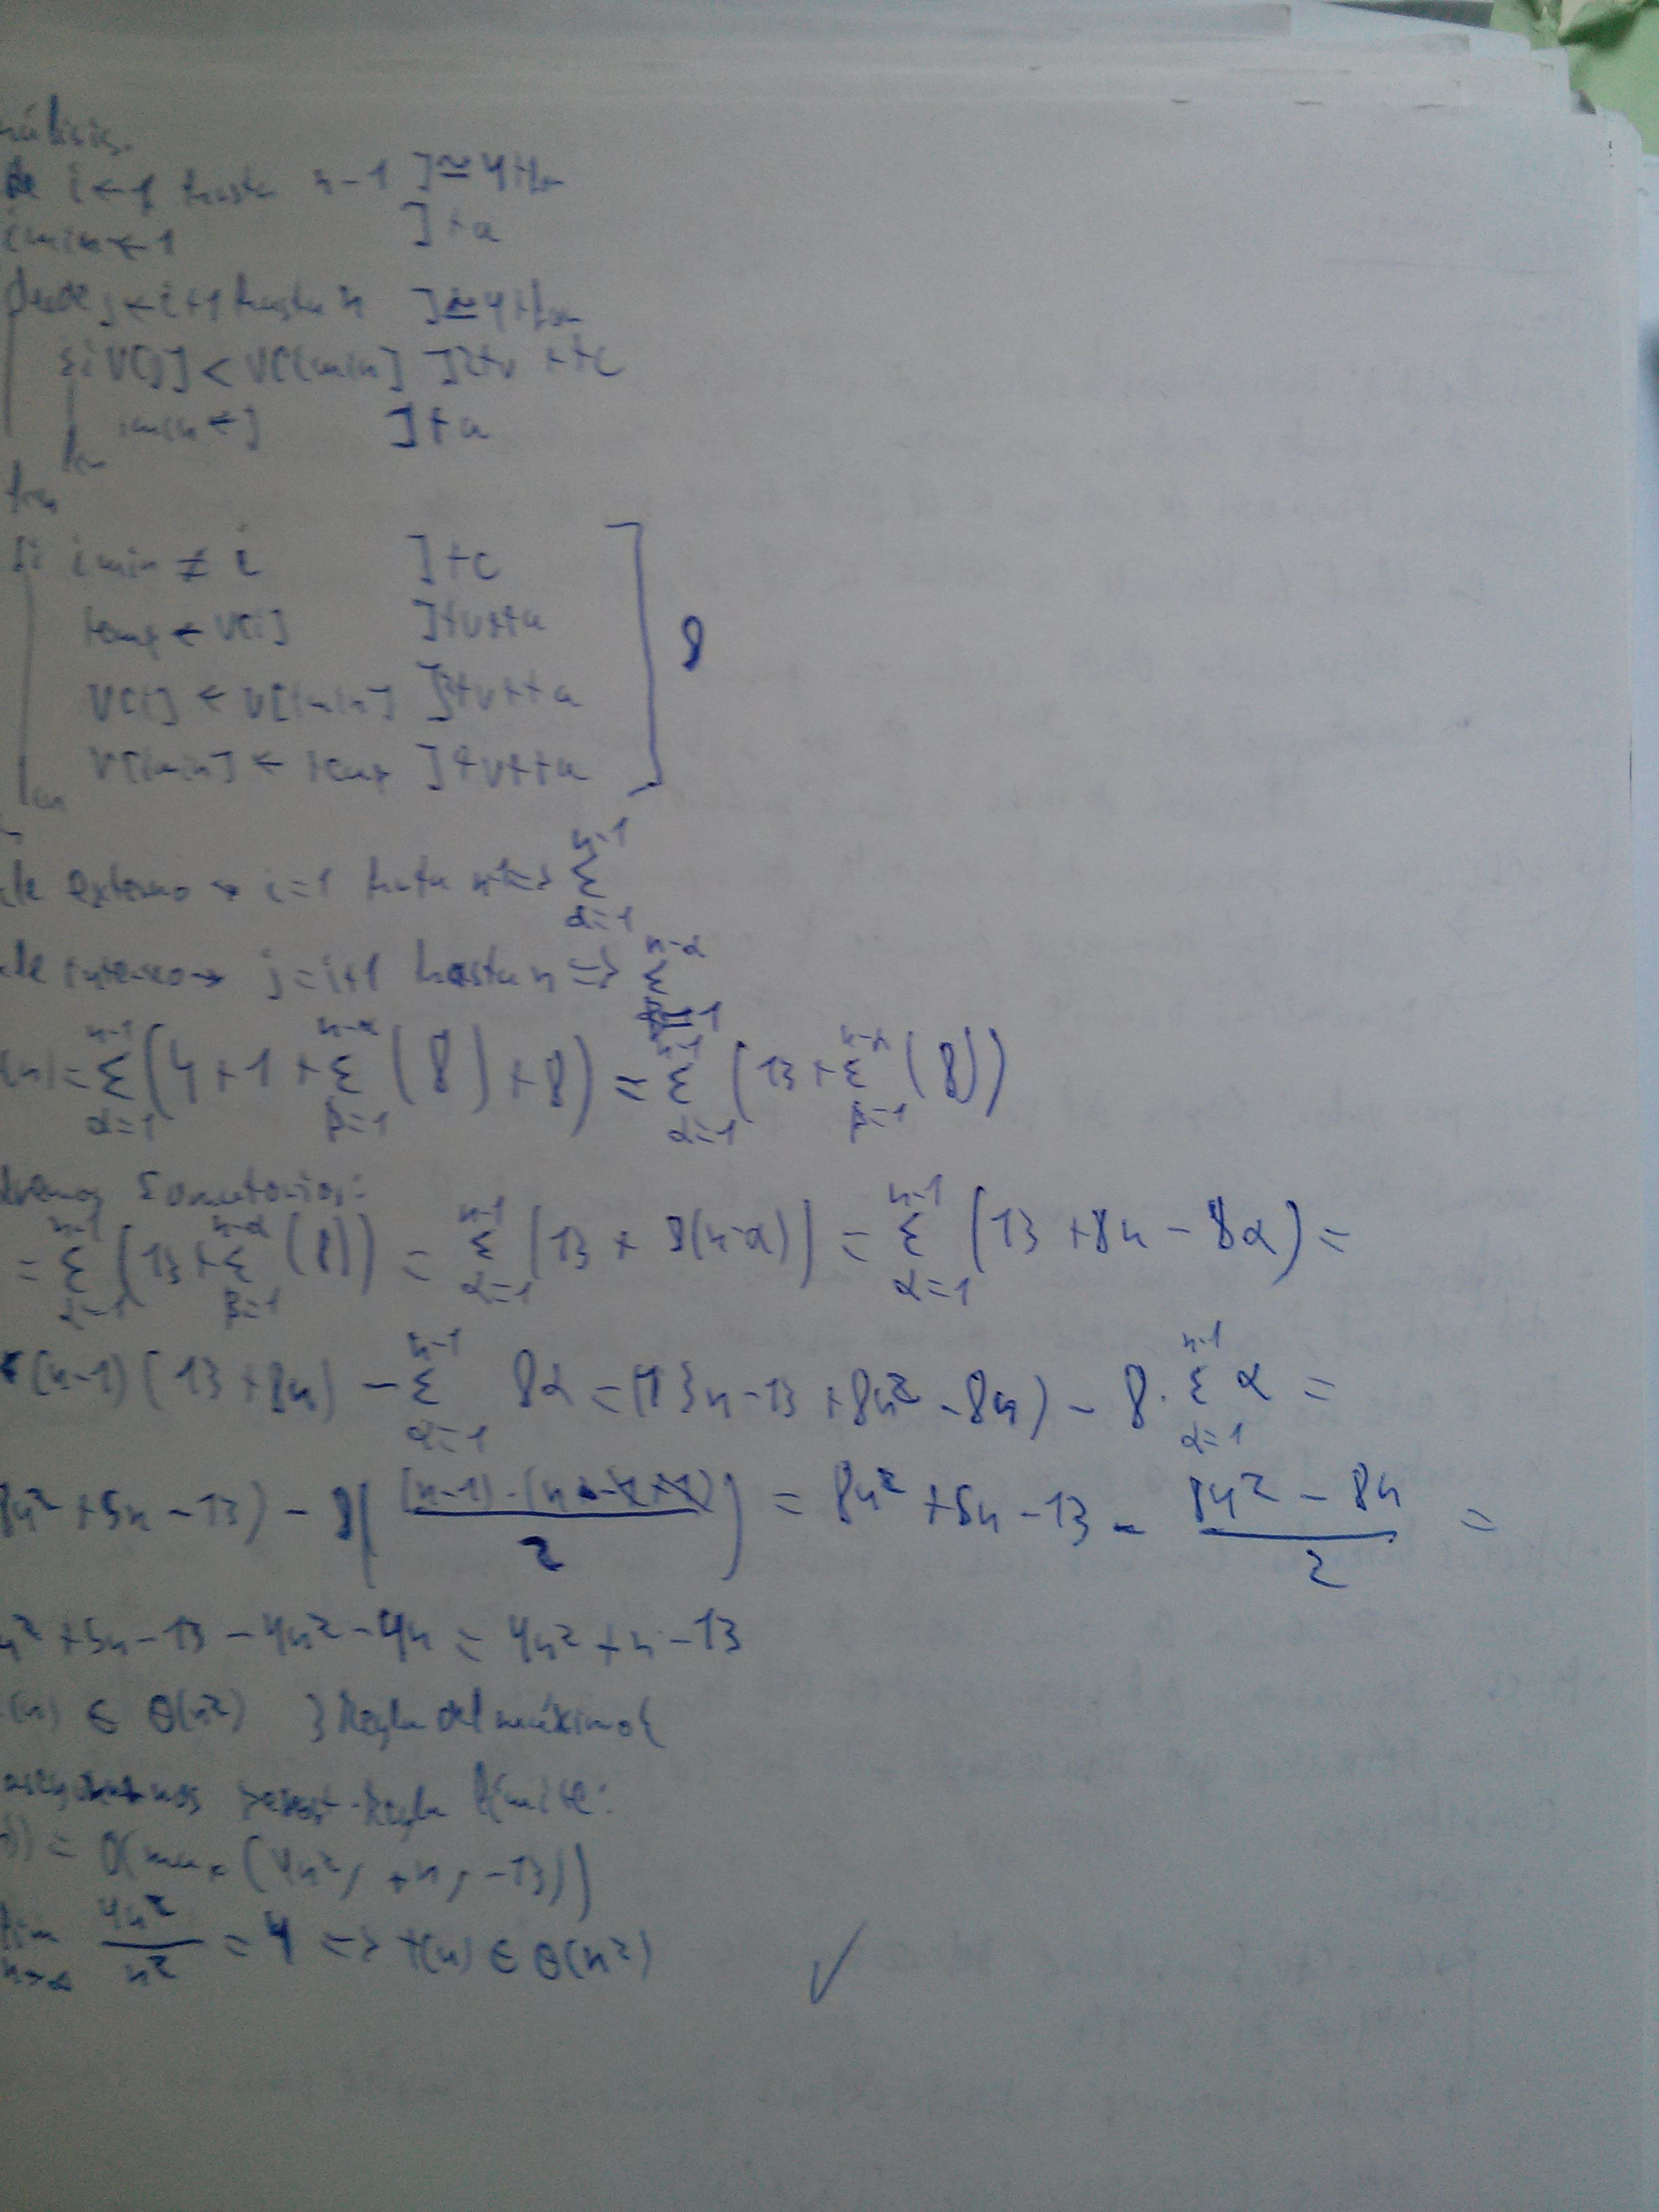 nálisis.
de i ← 1 hasta n-1 ] ≃ 4+
imin ← 1 ] ta
desde j ← i+1 hasta n ] ≃ 4+
si V[j] < V[imin] ] 2tv + tc
imin ← j ] ta
si imin ≠ i ] tc
temp ← V[i] ] tv+ta
V[i] ← V[imin] ] 2tv+ta
V[imin] ← temp ] tv+ta
8
cle externo → i=1 hasta n-1 => Σ_{α=1}^{n-1}
cle interno → j=i+1 hasta n => Σ^{n-α}
(n) = Σ_{α=1}^{n-1} (4+1+Σ_{β=1}^{n-α} (8) + 8) = Σ_{α=1}^{n-1} (13+Σ_{β=1}^{n-α} (8))
Sumatorios:
= Σ_{α=1}^{n-1} (13+Σ_{β=1}^{n-α} (8)) = Σ_{α=1}^{n-1} (13 + 8(n-α)) = Σ_{α=1}^{n-1} (13 + 8n - 8α) =
(n-1)(13+8n) - Σ_{α=1}^{n-1} 8α = (13n-13+8n²-8n) - 8 · Σ_{α=1}^{n-1} α =
8n²+5n-13) - 8( / 2 ) = 8n²+5n-13 - (8n²-8n)/2 =
n²+5n-13-4n²-4n = 4n²+n-13
(n) ∈ Θ(n²) } Regla del máximo {
Regla límite:
)) = O(max (4n², +n, -13))
lim n→∞ 4n²/n² = 4 => t(n) ∈ Θ(n²) ✓